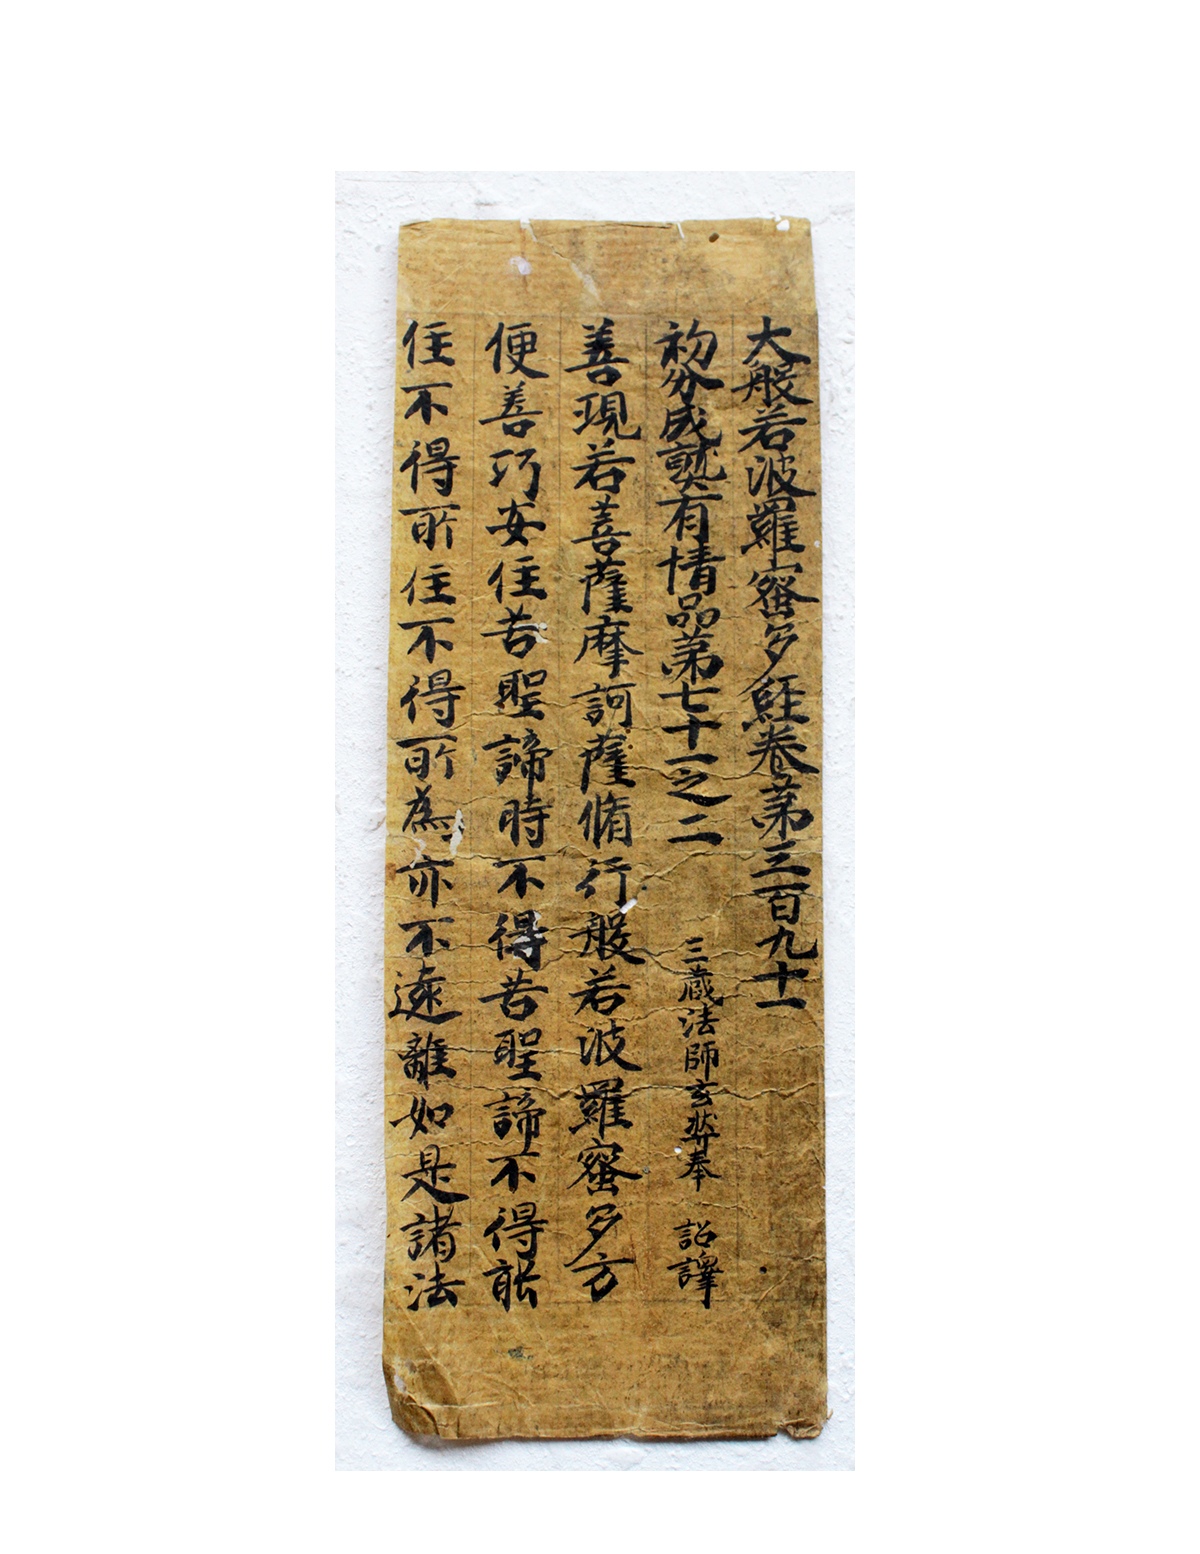 大般若波羅蜜多經卷第三百九十一
初分成熟有情品第七十一之二 三蔵法師玄奘奉 詔譯
善現若菩薩摩訶薩脩行般若波羅蜜多方
便善巧安住苦聖諦時不得苦聖諦不得能
住不得所住不得所為亦不遠離如是諸法